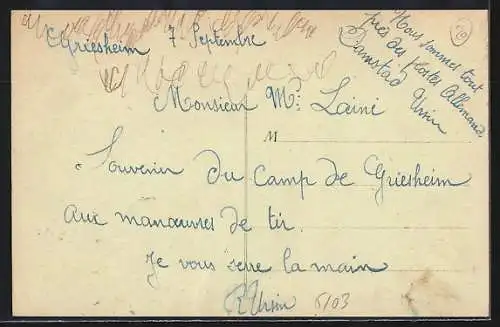 Griesheim 7 Septembre
Nous sommes tout
près des postes Allemands
Damstad Ursin
20
Monsieur Mr: Lainé
M
Souvenir du Camp de Griesheim
aux manœuvres de tir.
Je vous serre la main
Ursin 5/03